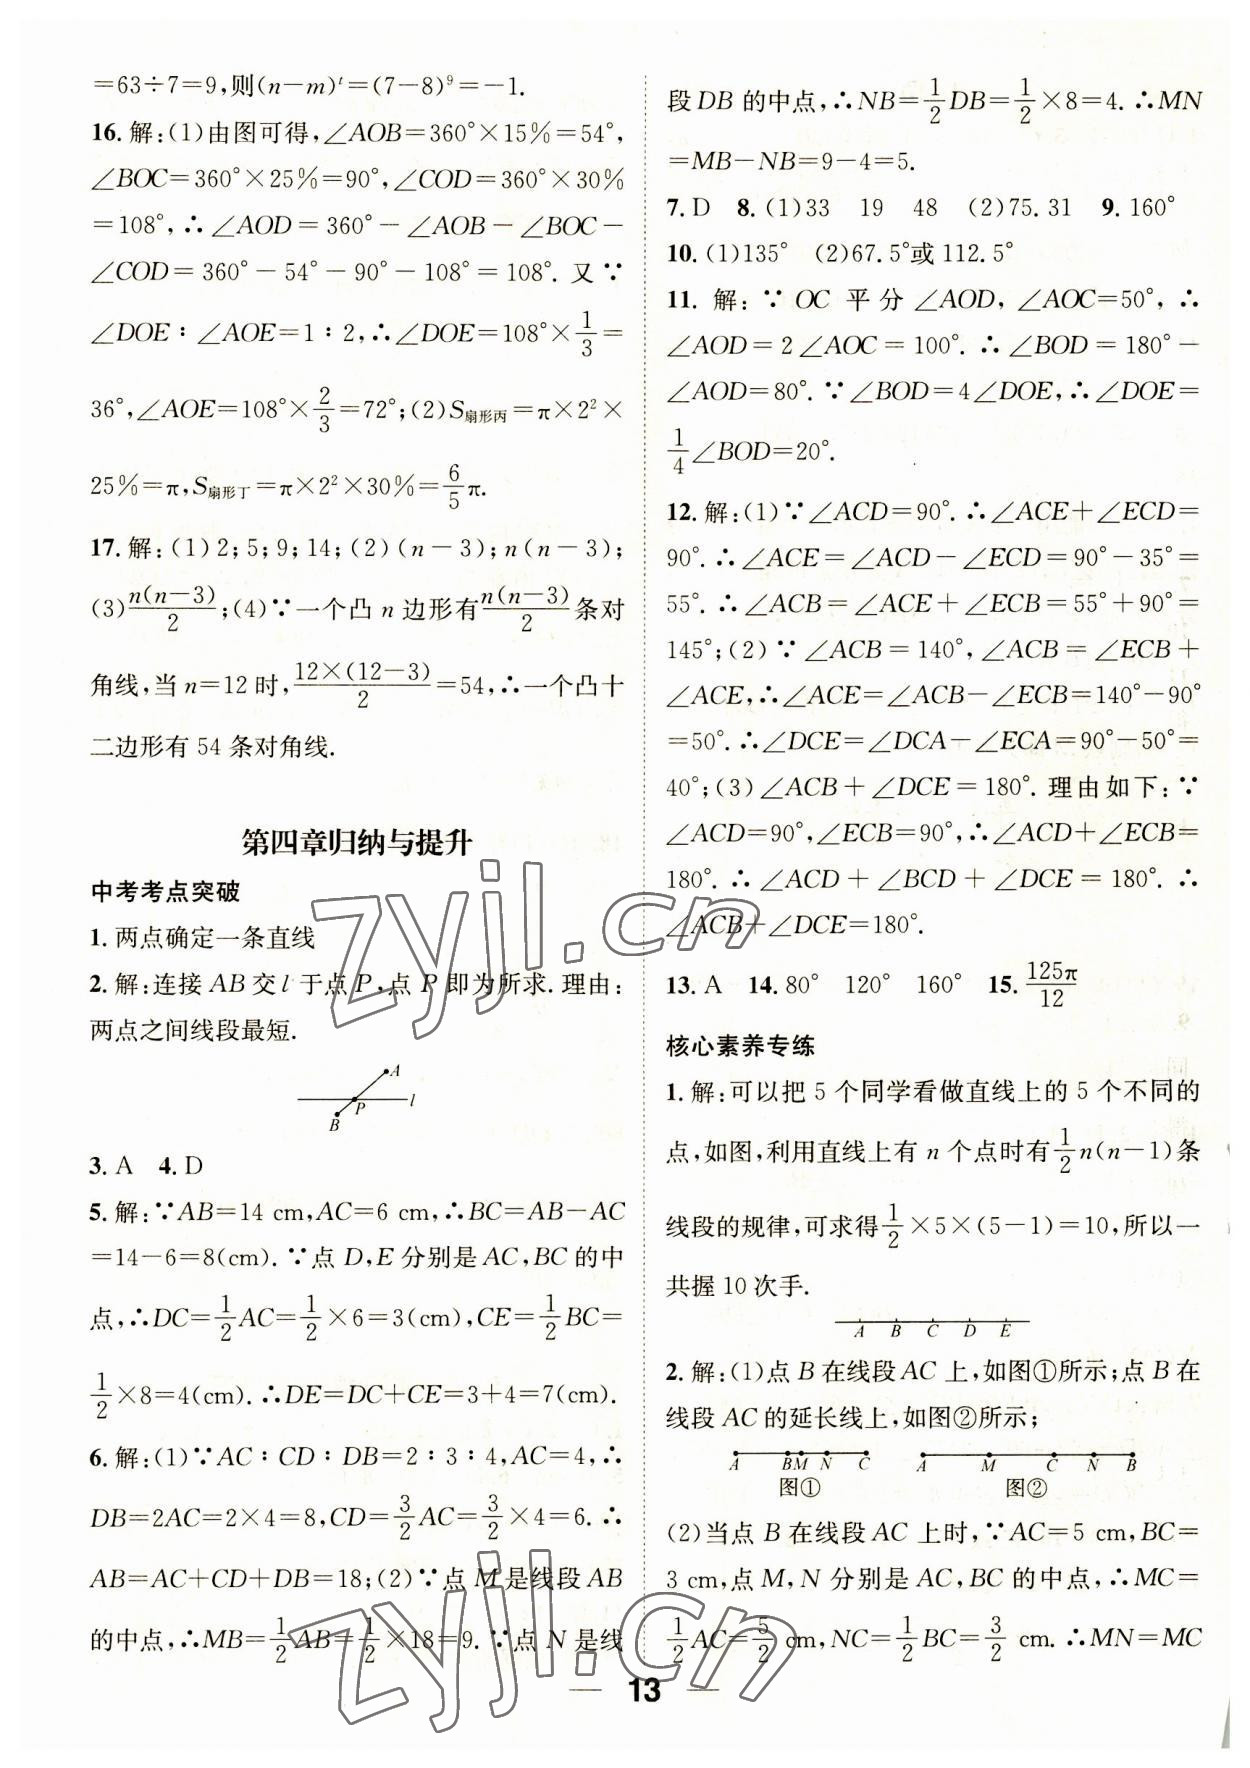 =63÷7=9,则(n-m)ᵗ=(7-8)⁹=-1.
16.解:(1)由图可得,∠AOB=360°×15%=54°,
∠BOC=360°×25%=90°,∠COD=360°×30%
=108°,∴∠AOD=360°-∠AOB-∠BOC-
∠COD=360°-54°-90°-108°=108°.又∵
∠DOE∶∠AOE=1∶2,∴∠DOE=108°×1/3=
36°,∠AOE=108°×2/3=72°;(2)S扇形丙=π×2²×
25%=π,S扇形丁=π×2²×30%=6/5π.
17.解:(1)2;5;9;14;(2)(n-3);n(n-3);
(3)n(n-3)/2;(4)∵一个凸n边形有n(n-3)/2条对
角线,当n=12时,12×(12-3)/2=54,∴一个凸十
二边形有54条对角线.
第四章归纳与提升
中考考点突破
1.两点确定一条直线
2.解:连接AB交l于点P,点P即为所求.理由:
两点之间线段最短.
A
P
l
B
3.A 4.D
5.解:∵AB=14 cm,AC=6 cm,∴BC=AB-AC
=14-6=8(cm).∵点D,E分别是AC,BC的中
点,∴DC=1/2AC=1/2×6=3(cm),CE=1/2BC=
1/2×8=4(cm).∴DE=DC+CE=3+4=7(cm).
6.解:(1)∵AC∶CD∶DB=2∶3∶4,AC=4,∴
DB=2AC=2×4=8,CD=3/2AC=3/2×4=6.∴
AB=AC+CD+DB=18;(2)∵点M是线段AB
的中点,∴MB=1/2AB=1/2×18=9.∵点N是线
段DB的中点,∴NB=1/2DB=1/2×8=4.∴MN
=MB-NB=9-4=5.
7.D 8.(1)33 19 48 (2)75.31 9.160°
10.(1)135° (2)67.5°或112.5°
11.解:∵OC平分∠AOD,∠AOC=50°,∴
∠AOD=2∠AOC=100°.∴∠BOD=180°-
∠AOD=80°.∵∠BOD=4∠DOE,∴∠DOE=
1/4∠BOD=20°.
12.解:(1)∵∠ACD=90°.∴∠ACE+∠ECD=
90°.∴∠ACE=∠ACD-∠ECD=90°-35°=
55°.∴∠ACB=∠ACE+∠ECB=55°+90°=
145°;(2)∵∠ACB=140°,∠ACB=∠ECB+
∠ACE,∴∠ACE=∠ACB-∠ECB=140°-90°
=50°.∴∠DCE=∠DCA-∠ECA=90°-50°=
40°;(3)∠ACB+∠DCE=180°.理由如下:∵
∠ACD=90°,∠ECB=90°,∴∠ACD+∠ECB=
180°.∴∠ACD+∠BCD+∠DCE=180°.∴
∠ACB+∠DCE=180°.
13.A 14.80° 120° 160° 15.125π/12
核心素养专练
1.解:可以把5个同学看做直线上的5个不同的
点,如图,利用直线上有n个点时有1/2n(n-1)条
线段的规律,可求得1/2×5×(5-1)=10,所以一
共握10次手.
A B C D E
2.解:(1)点B在线段AC上,如图①所示;点B在
线段AC的延长线上,如图②所示;
A BM N C A M C N B
图① 图②
(2)当点B在线段AC上时,∵AC=5 cm,BC=
3 cm,点M,N分别是AC,BC的中点,∴MC=
1/2AC=5/2 cm,NC=1/2BC=3/2 cm.∴MN=MC
13
zyjl.cn
zyjl.cn